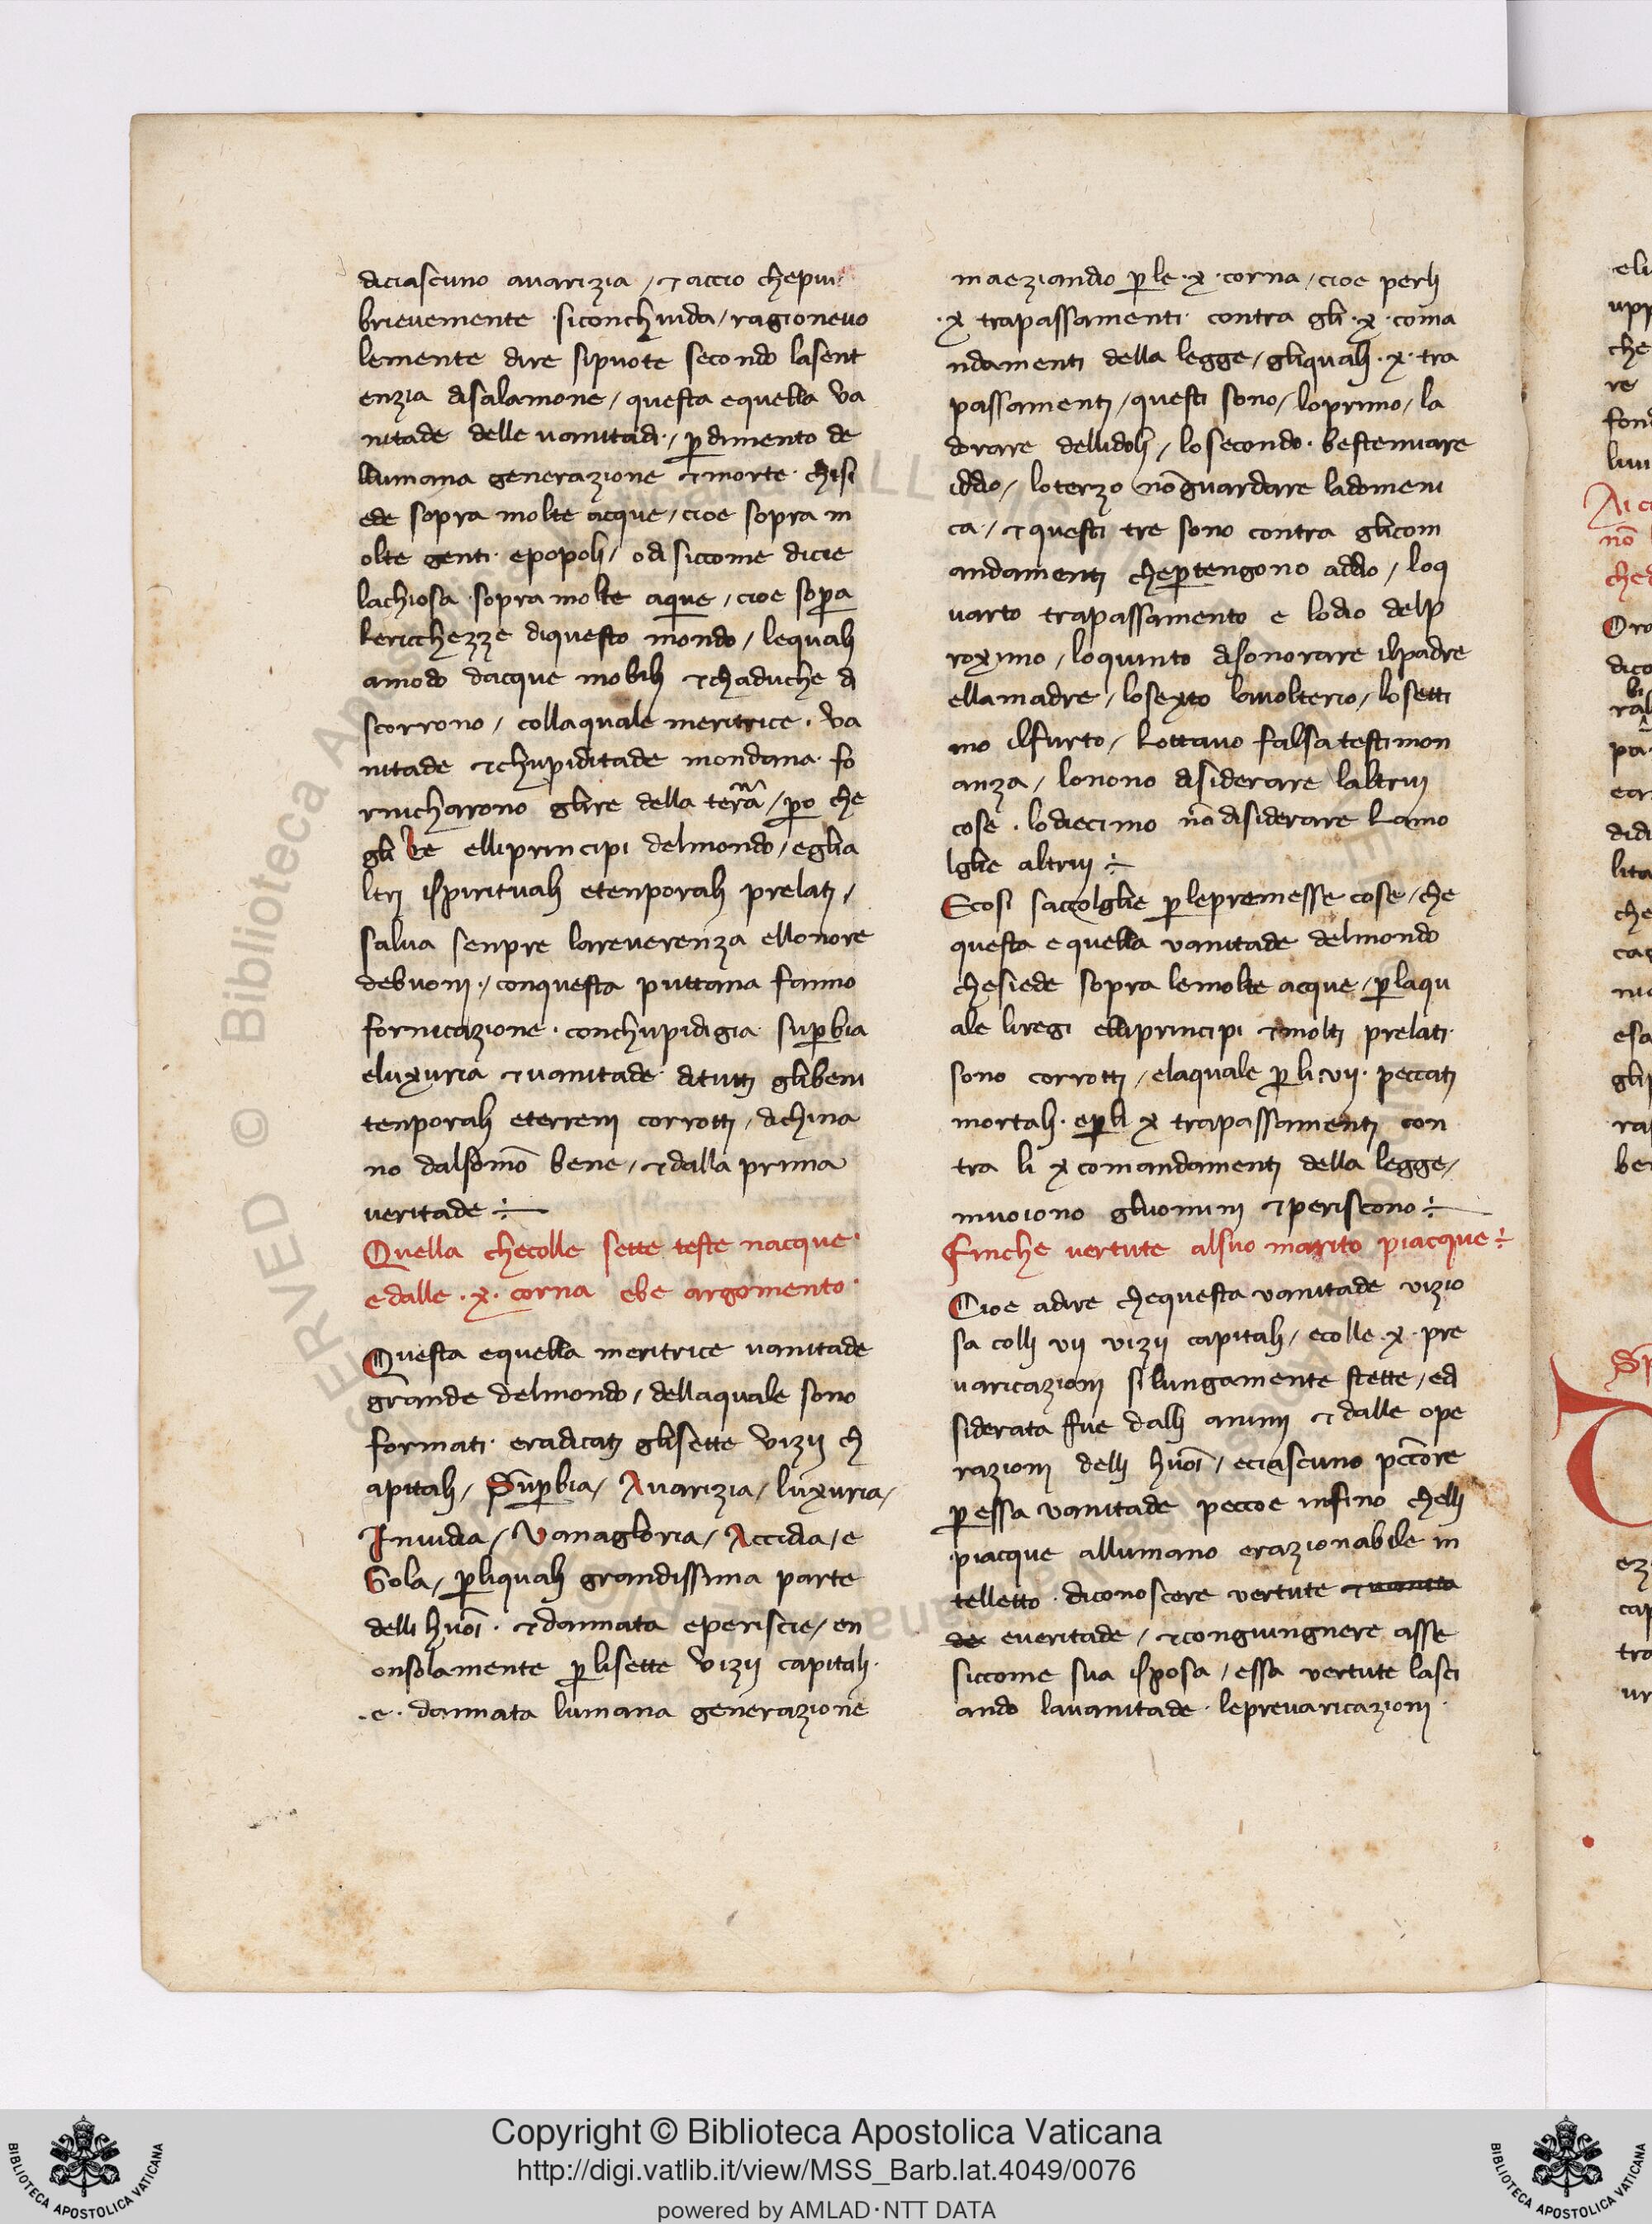 diciascuno avarizia / ⁊ accio chepiu
brievemente siconchiuida / ragionevo
lemente dire sipuote secondo lasent
enzia disalamone / questa equella va
nitade delle vanitadi / ꝑdimento de
llumana generazione ⁊ morte chisi
ede sopra molte acque / cioe sopra m
olte genti epopoli / odi siccome dicie
lachiosa sopra molte aque / cioe soꝑa
lericchezze diquesto mondo / lequali
amodo dacque mobili ⁊ chaduche di
scorrono / collaquale meritrice va
nitade ⁊ chupiditade mondana fo
rnicharono glire della terra / ꝑo che
gli Re elliprincipi delmondo / eglia
ltri ispirituali etenporali prelati /
salva senpre lareverenza ellonore
debuoni / conquesta puttana fanno
fornicazione conchupidigia suꝑbia
eluxuria ⁊ vanitade dituti glibeni
tenporali eterreni corrotti / dichina
no dalsomō bene / ⁊ dalla prima
veritade ÷
Quella checolle sette teste nacque
edalle .x. corna ebe argomento
Questa equella meritrice vanitade
grande delmondo / dellaquale sono
formati eradicati glisette vizij ch
apitali / Suꝑbia / Avarizia / luxuria /
Invidia / Vanagloria / Accidia / e
Gola / ꝑliquali grandissima parte
delli huoī ⁊ dannata eperiscie / en
onsolamente ꝑlisette vizij capitali
.e. dannata lumana generazione
maeziandio ꝑle .x. corna / cioe perli
.x trapassamenti contra gli .x. coma
ndamenti della legge / gliquali .x. tra
passamenti / questi sono / loprimo / la
dorare dellidoli / losecondo bestenmiare
iddio / loterzo nō guardare ladomeni
ca / ⁊ questi tre sono contra glicom
andamenti cheꝑtengono addio / loq
uarto trapassamento e lodio delp
roximo / loquinto disonorare ilpadre
ellamadre / losexto lavolterio / losetti
mo ilfurto / lottavo falsa testimon
anza / lonono disiderare laltrui
cose . lodiecimo nō disiderare lamo
lglie altrui ÷
Ecosi saccolglie ꝑlepremesse cose / che
questa equella vanitade delmondo
chesiede sopra lemolte acque / ꝑlaqu
ale liregi elliprincipi ⁊ molti prelati
sono corrotti / elaquale ꝑli vij peccati
mortali eꝑli x trapassamenti con
tra li x comandamenti della legge /
muoiono gluomini ⁊ periscono ÷
Finche vertute alsuo marito piacque ÷
Cioe adire chequesta vanitade vizio
sa colli vij vizij capitali / ecolle .x. pre
varicazioni silungamente stette / edi
siderata fue dalli animi ⁊ dalle ope
razioni delli huoī / eciascuno pccōre
ꝑ essa vanitade peccoe infino chelli
piacque allumano erazionabile in
telletto diconoscere vertute ⁊ vanita
de everitade / ⁊ congiungnere asse
siccome sua isposa / essa vertute lasci
ando lavanitade leprevaricazioni
Copyright © Biblioteca Apostolica Vaticana
http://digi.vatlib.it/view/MSS_Barb.lat.4049/0076
powered by AMLAD·NTT DATA
BIBLIOTECA APOSTOLICA VATICANA
BIBLIOTECA APOSTOLICA VATICANA